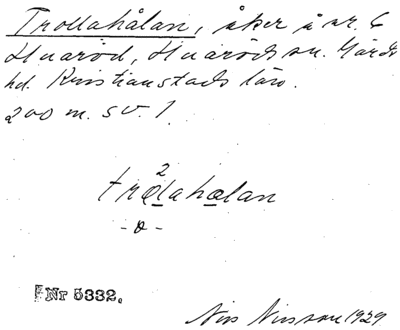 Trollahålan, åker å nr. 6
Huaröd, Huaröds sn. Gärds
hd. Kristianstads län.
200 m. SV. 1.
2
trolahålan
-o-
Nr 5332.
Nils Nilsson 1929